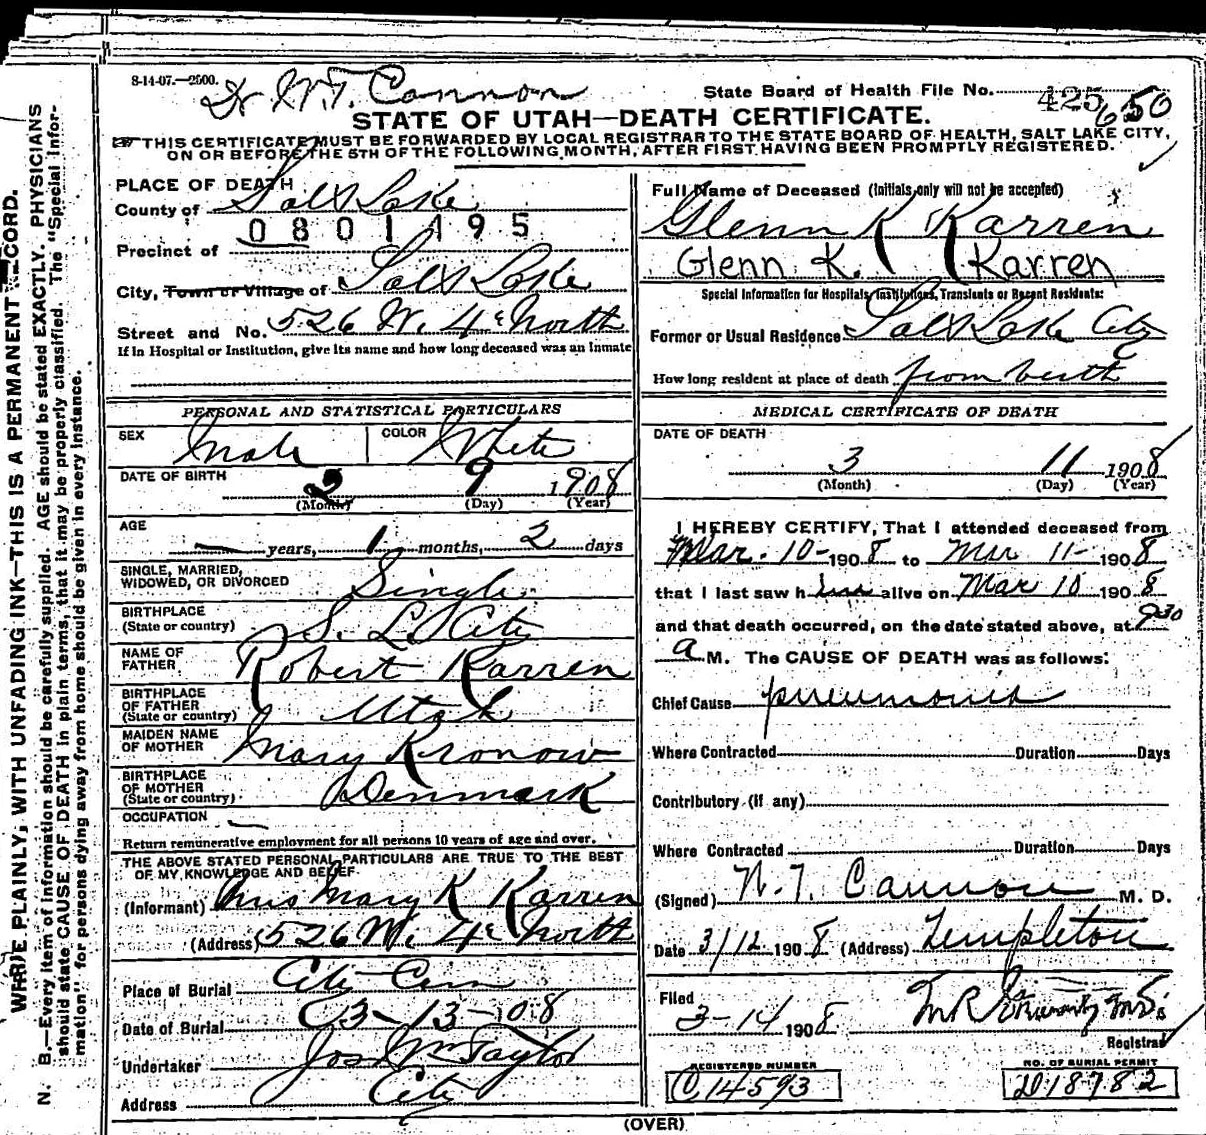 8-14-07.—2500.
Dr W.T. Cannon
State Board of Health File No. 425 650
STATE OF UTAH—DEATH CERTIFICATE.
THIS CERTIFICATE MUST BE FORWARDED BY LOCAL REGISTRAR TO THE STATE BOARD OF HEALTH, SALT LAKE CITY,
ON OR BEFORE THE 5TH OF THE FOLLOWING MONTH, AFTER FIRST HAVING BEEN PROMPTLY REGISTERED.
WRITE PLAINLY, WITH UNFADING INK—THIS IS A PERMANENT RECORD.
N. B.—Every item of information should be carefully supplied. AGE should be stated EXACTLY. PHYSICIANS
should state CAUSE OF DEATH in plain terms, that it may be properly classified. The "Special Infor-
mation" for persons dying away from home should be given in every instance.
PLACE OF DEATH
County of Salt Lake
0801495
Precinct of
City, Town or Village of Salt Lake
Street and No. 526 W. 4th North
If in Hospital or Institution, give its name and how long deceased was an inmate
PERSONAL AND STATISTICAL PARTICULARS
SEX Male COLOR White
DATE OF BIRTH 2 9 1908
(Month) (Day) (Year)
AGE
— years, 1 months, 2 days
SINGLE, MARRIED,
WIDOWED, OR DIVORCED Single
BIRTHPLACE
(State or country) S. L. City
NAME OF
FATHER Robert Karren
BIRTHPLACE
OF FATHER
(State or country) Utah
MAIDEN NAME
OF MOTHER Mary Kronow
BIRTHPLACE
OF MOTHER
(State or country) Denmark
OCCUPATION —
Return remunerative employment for all persons 10 years of age and over.
THE ABOVE STATED PERSONAL PARTICULARS ARE TRUE TO THE BEST
OF MY KNOWLEDGE AND BELIEF
(Informant) Mrs Mary K Karren
(Address) 526 W. 4th North
Place of Burial City Cem
Date of Burial 3-13-08
Undertaker Jos Wm Taylor
Address City
Full Name of Deceased (Initials only will not be accepted)
Glenn K Karren
Glenn K. Karren
Special Information for Hospitals, Institutions, Transients or Recent Residents:
Former or Usual Residence Salt Lake City
How long resident at place of death from birth
MEDICAL CERTIFICATE OF DEATH
DATE OF DEATH
3 11 1908
(Month) (Day) (Year)
I HEREBY CERTIFY, That I attended deceased from
Mar. 10- 1908 to Mar 11- 1908
that I last saw him alive on Mar 10 1908
and that death occurred, on the date stated above, at 9 30
a M. The CAUSE OF DEATH was as follows:
Chief Cause pneumonia
Where Contracted Duration Days
Contributory (if any)
Where Contracted Duration Days
(Signed) W. T. Cannon M. D.
Date 3/12 1908 (Address) Templeton
Filed
3-14 1908
Registrar
REGISTERED NUMBER
C14593
NO. OF BURIAL PERMIT
D18782
(OVER)